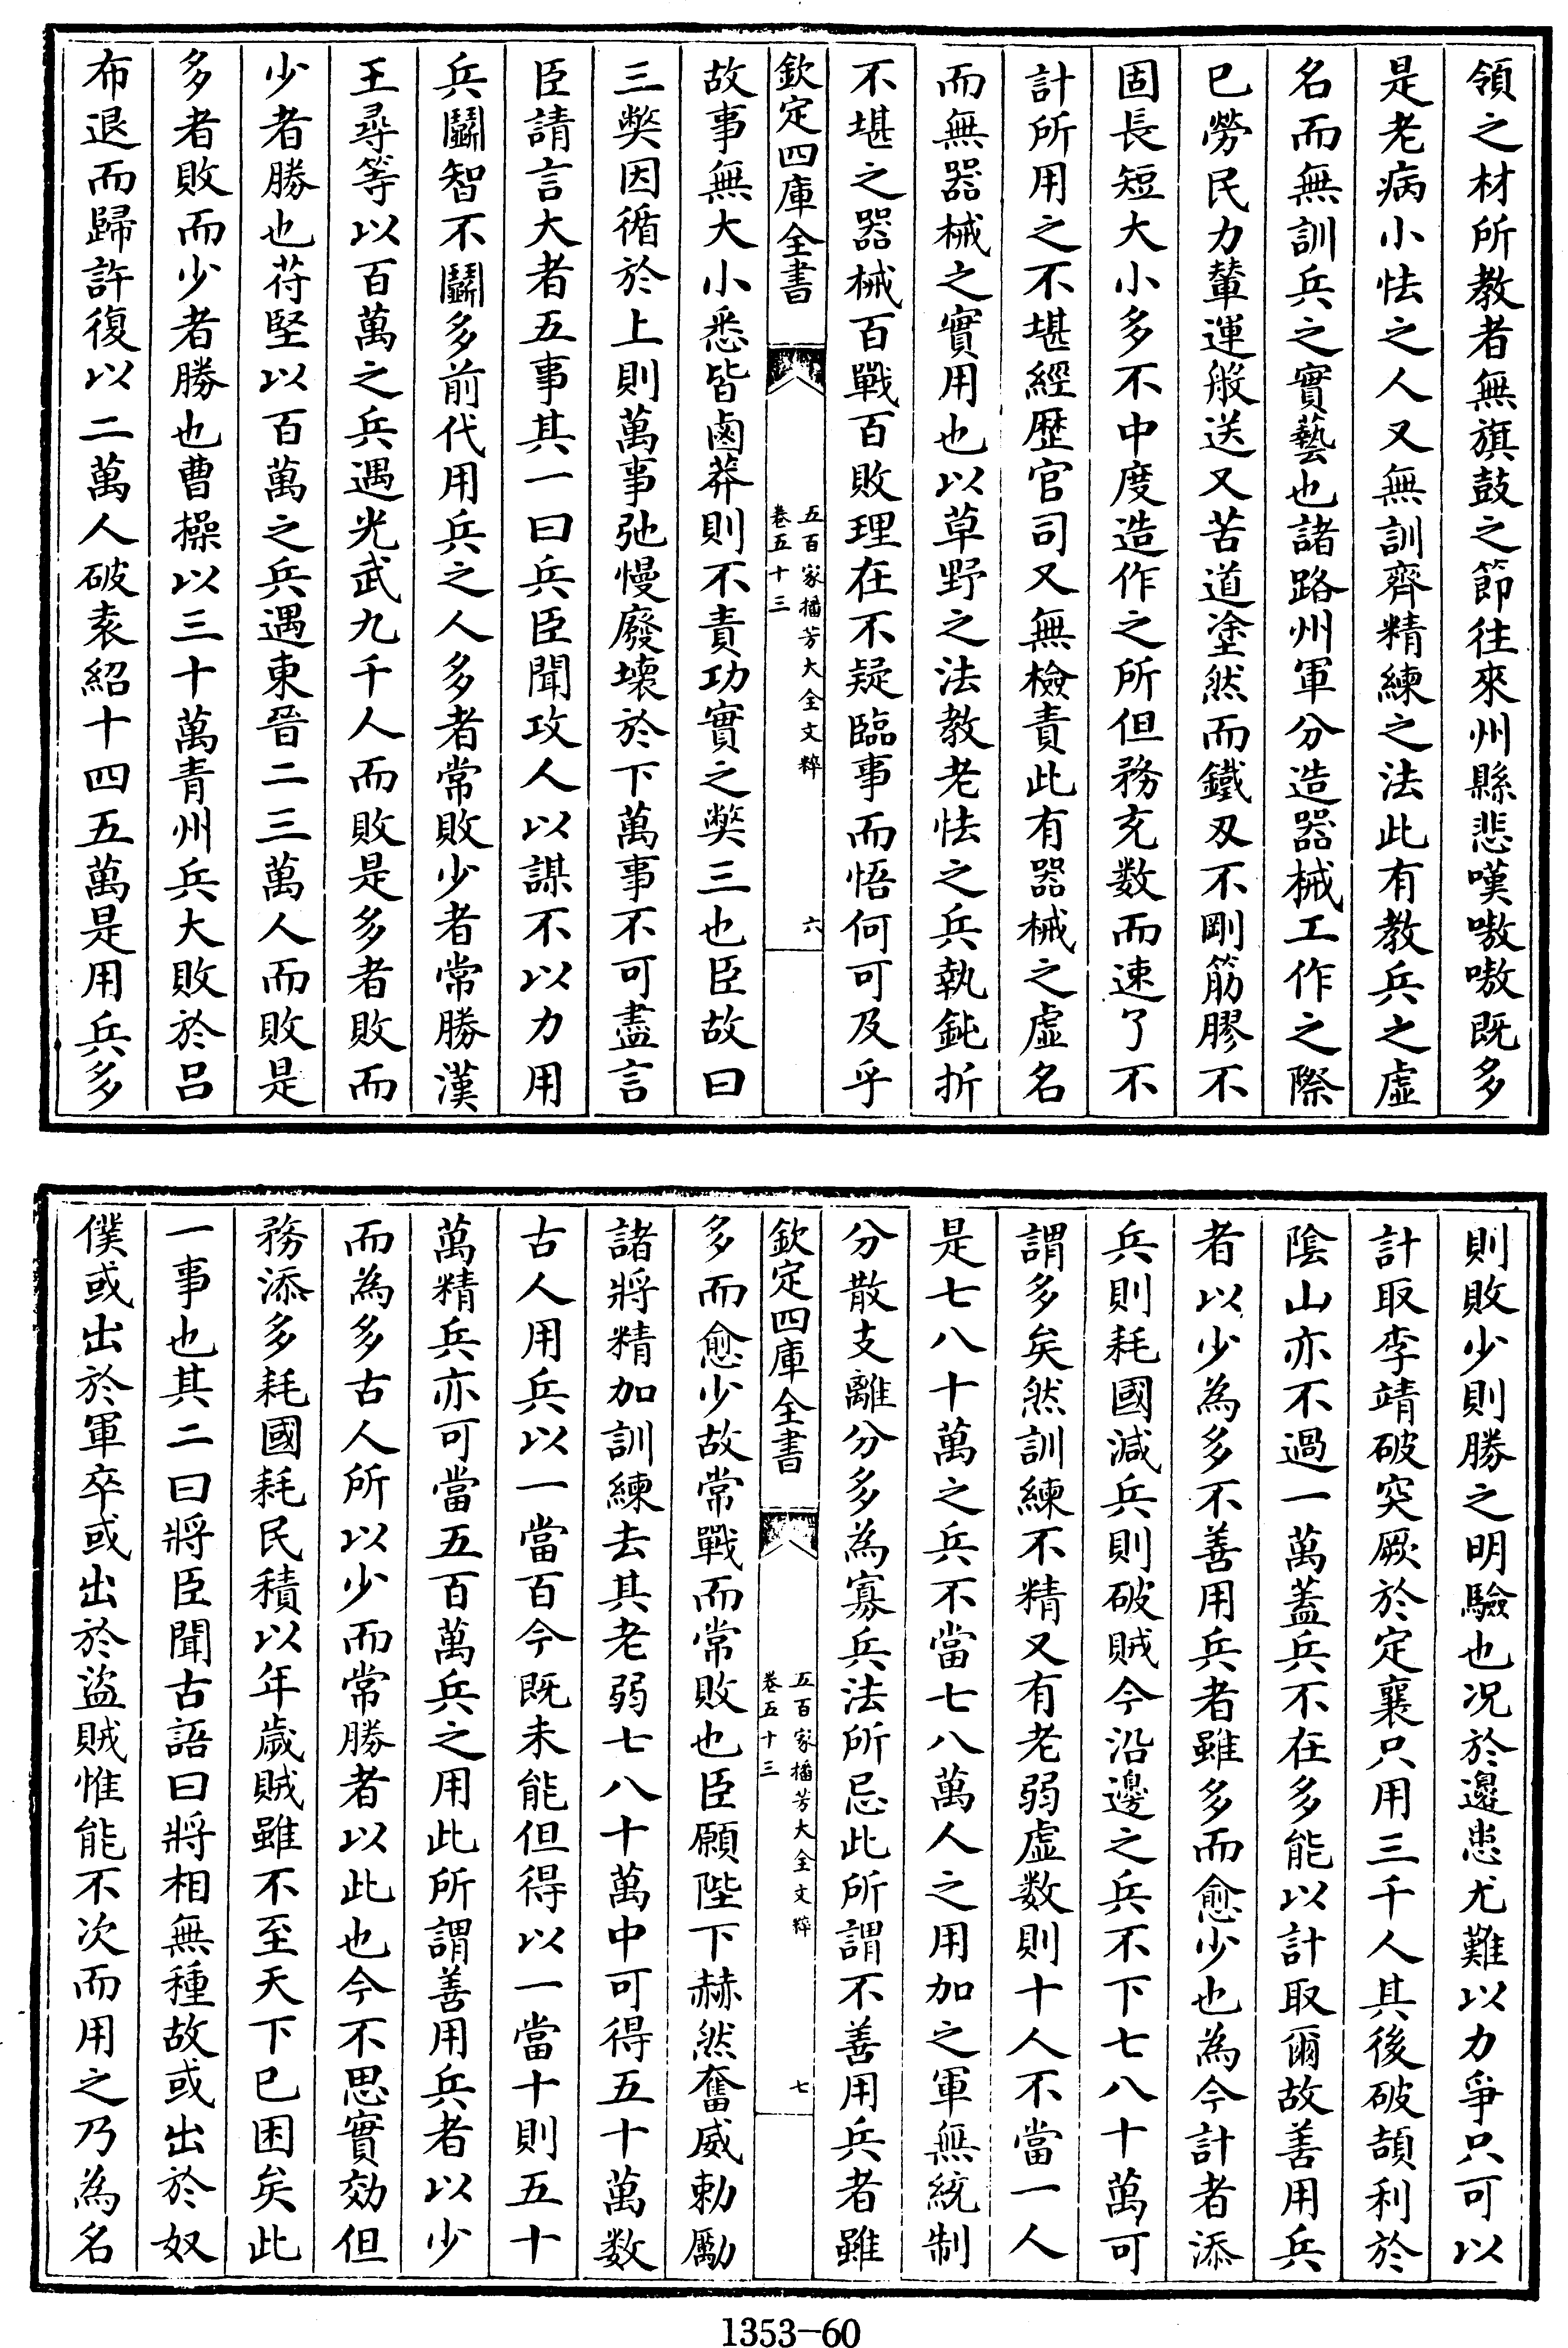 領之材所教者無旗鼓之節往來州縣悲嘆嗷嗷既多
是老病小怯之人又無訓齊精練之法此有教兵之虛
名而無訓兵之實藝也諸路州軍分造器械工作之際
已勞民力輦運般送又苦道塗然而鐵刄不剛筋膠不
固長短大小多不中度造作之所但務充数而速了不
計所用之不堪經歴官司又無檢責此有器械之虛名
而無器械之實用也以草野之法教老怯之兵執鈍折
不堪之器械百戰百敗理在不疑臨事而悟何可及乎
欽定四庫全書
五百家播芳大全文粹
卷五十三
六
故事無大小悉皆鹵莽則不責功實之弊三也臣故曰
三弊因循於上則萬事弛慢廢壞於下萬事不可盡言
臣請言大者五事其一曰兵臣聞攻人以謀不以力用
兵鬭智不鬭多前代用兵之人多者常敗少者常勝漢
王尋等以百萬之兵遇光武九千人而敗是多者敗而
少者勝也苻堅以百萬之兵遇東晉二三萬人而敗是
多者敗而少者勝也曹操以三十萬青州兵大敗於呂
布退而歸許復以二萬人破袁紹十四五萬是用兵多
則敗少則勝之明驗也况於邊患尤難以力爭只可以
計取李靖破突厥於定襄只用三千人其後破頡利於
陰山亦不過一萬蓋兵不在多能以計取爾故善用兵
者以少為多不善用兵者雖多而愈少也為今計者添
兵則耗國減兵則破賊今沿邊之兵不下七八十萬可
謂多矣然訓練不精又有老弱虚数則十人不當一人
是七八十萬之兵不當七八萬人之用加之軍無統制
分散支離分多為寡兵法所忌此所謂不善用兵者雖
欽定四庫全書
五百家播芳大全文粹
卷五十三
七
多而愈少故常戰而常敗也臣願陛下赫然奮威勅勵
諸將精加訓練去其老弱七八十萬中可得五十萬数
古人用兵以一當百今既未能但得以一當十則五十
萬精兵亦可當五百萬兵之用此所謂善用兵者以少
而為多古人所以少而常勝者以此也今不思實効但
務添多耗國耗民積以年歲賊雖不至天下已困矣此
一事也其二曰將臣聞古語曰將相無種故或出於奴
僕或出於軍卒或出於盜賊惟能不次而用之乃為名
1353-60